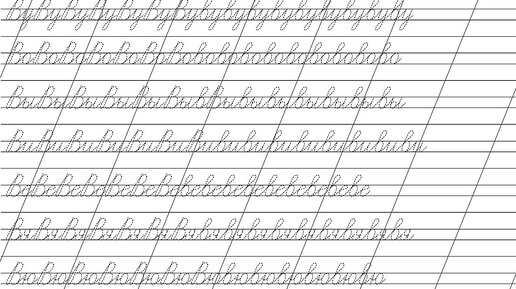 ВуВуВуВуВуВуВувувувувувувувуву
ВоВоВоВоВоВоВововововововововово
ВыВыВыВыВыВыВывывывывывывы
ВиВиВиВиВиВиВивививививививи
ВеВеВеВеВеВеВевевевевевевеве
ВяВяВяВяВяВяВявявявявявявявявя
ВюВюВюВюВюВюВювювювювювювю